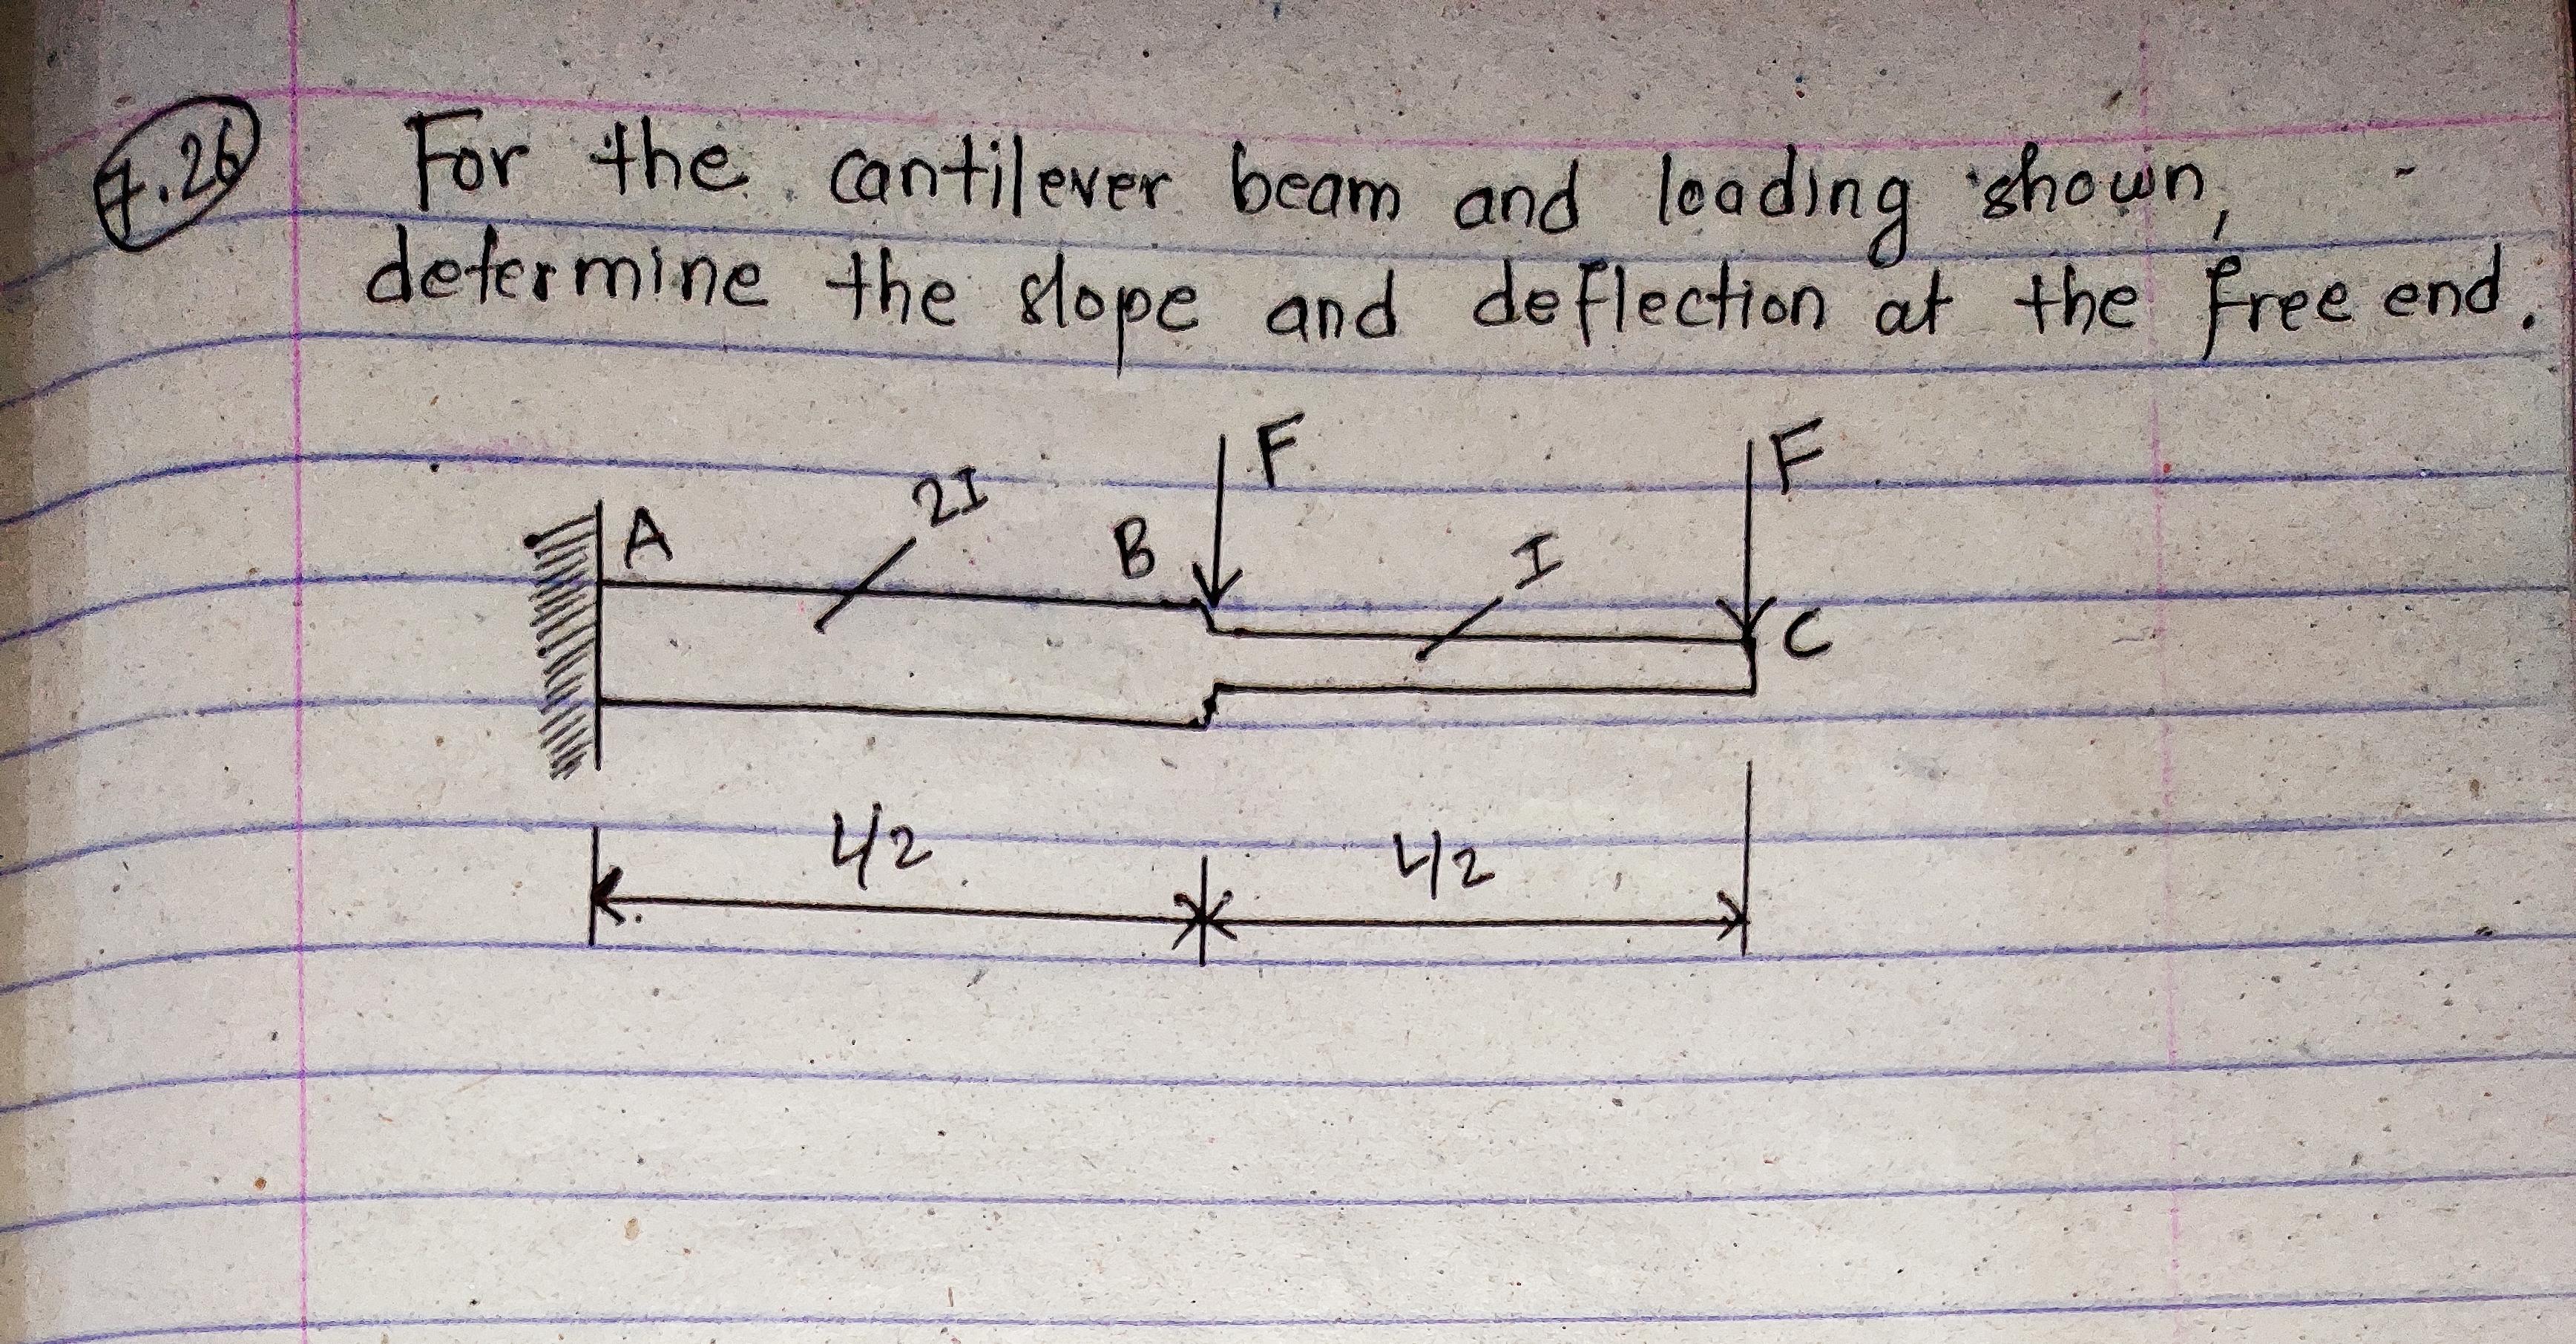 7.26 For the cantilever beam and loading shown,
determine the slope and deflection at the free end.
F F
2I
A B I
C
L/2 L/2